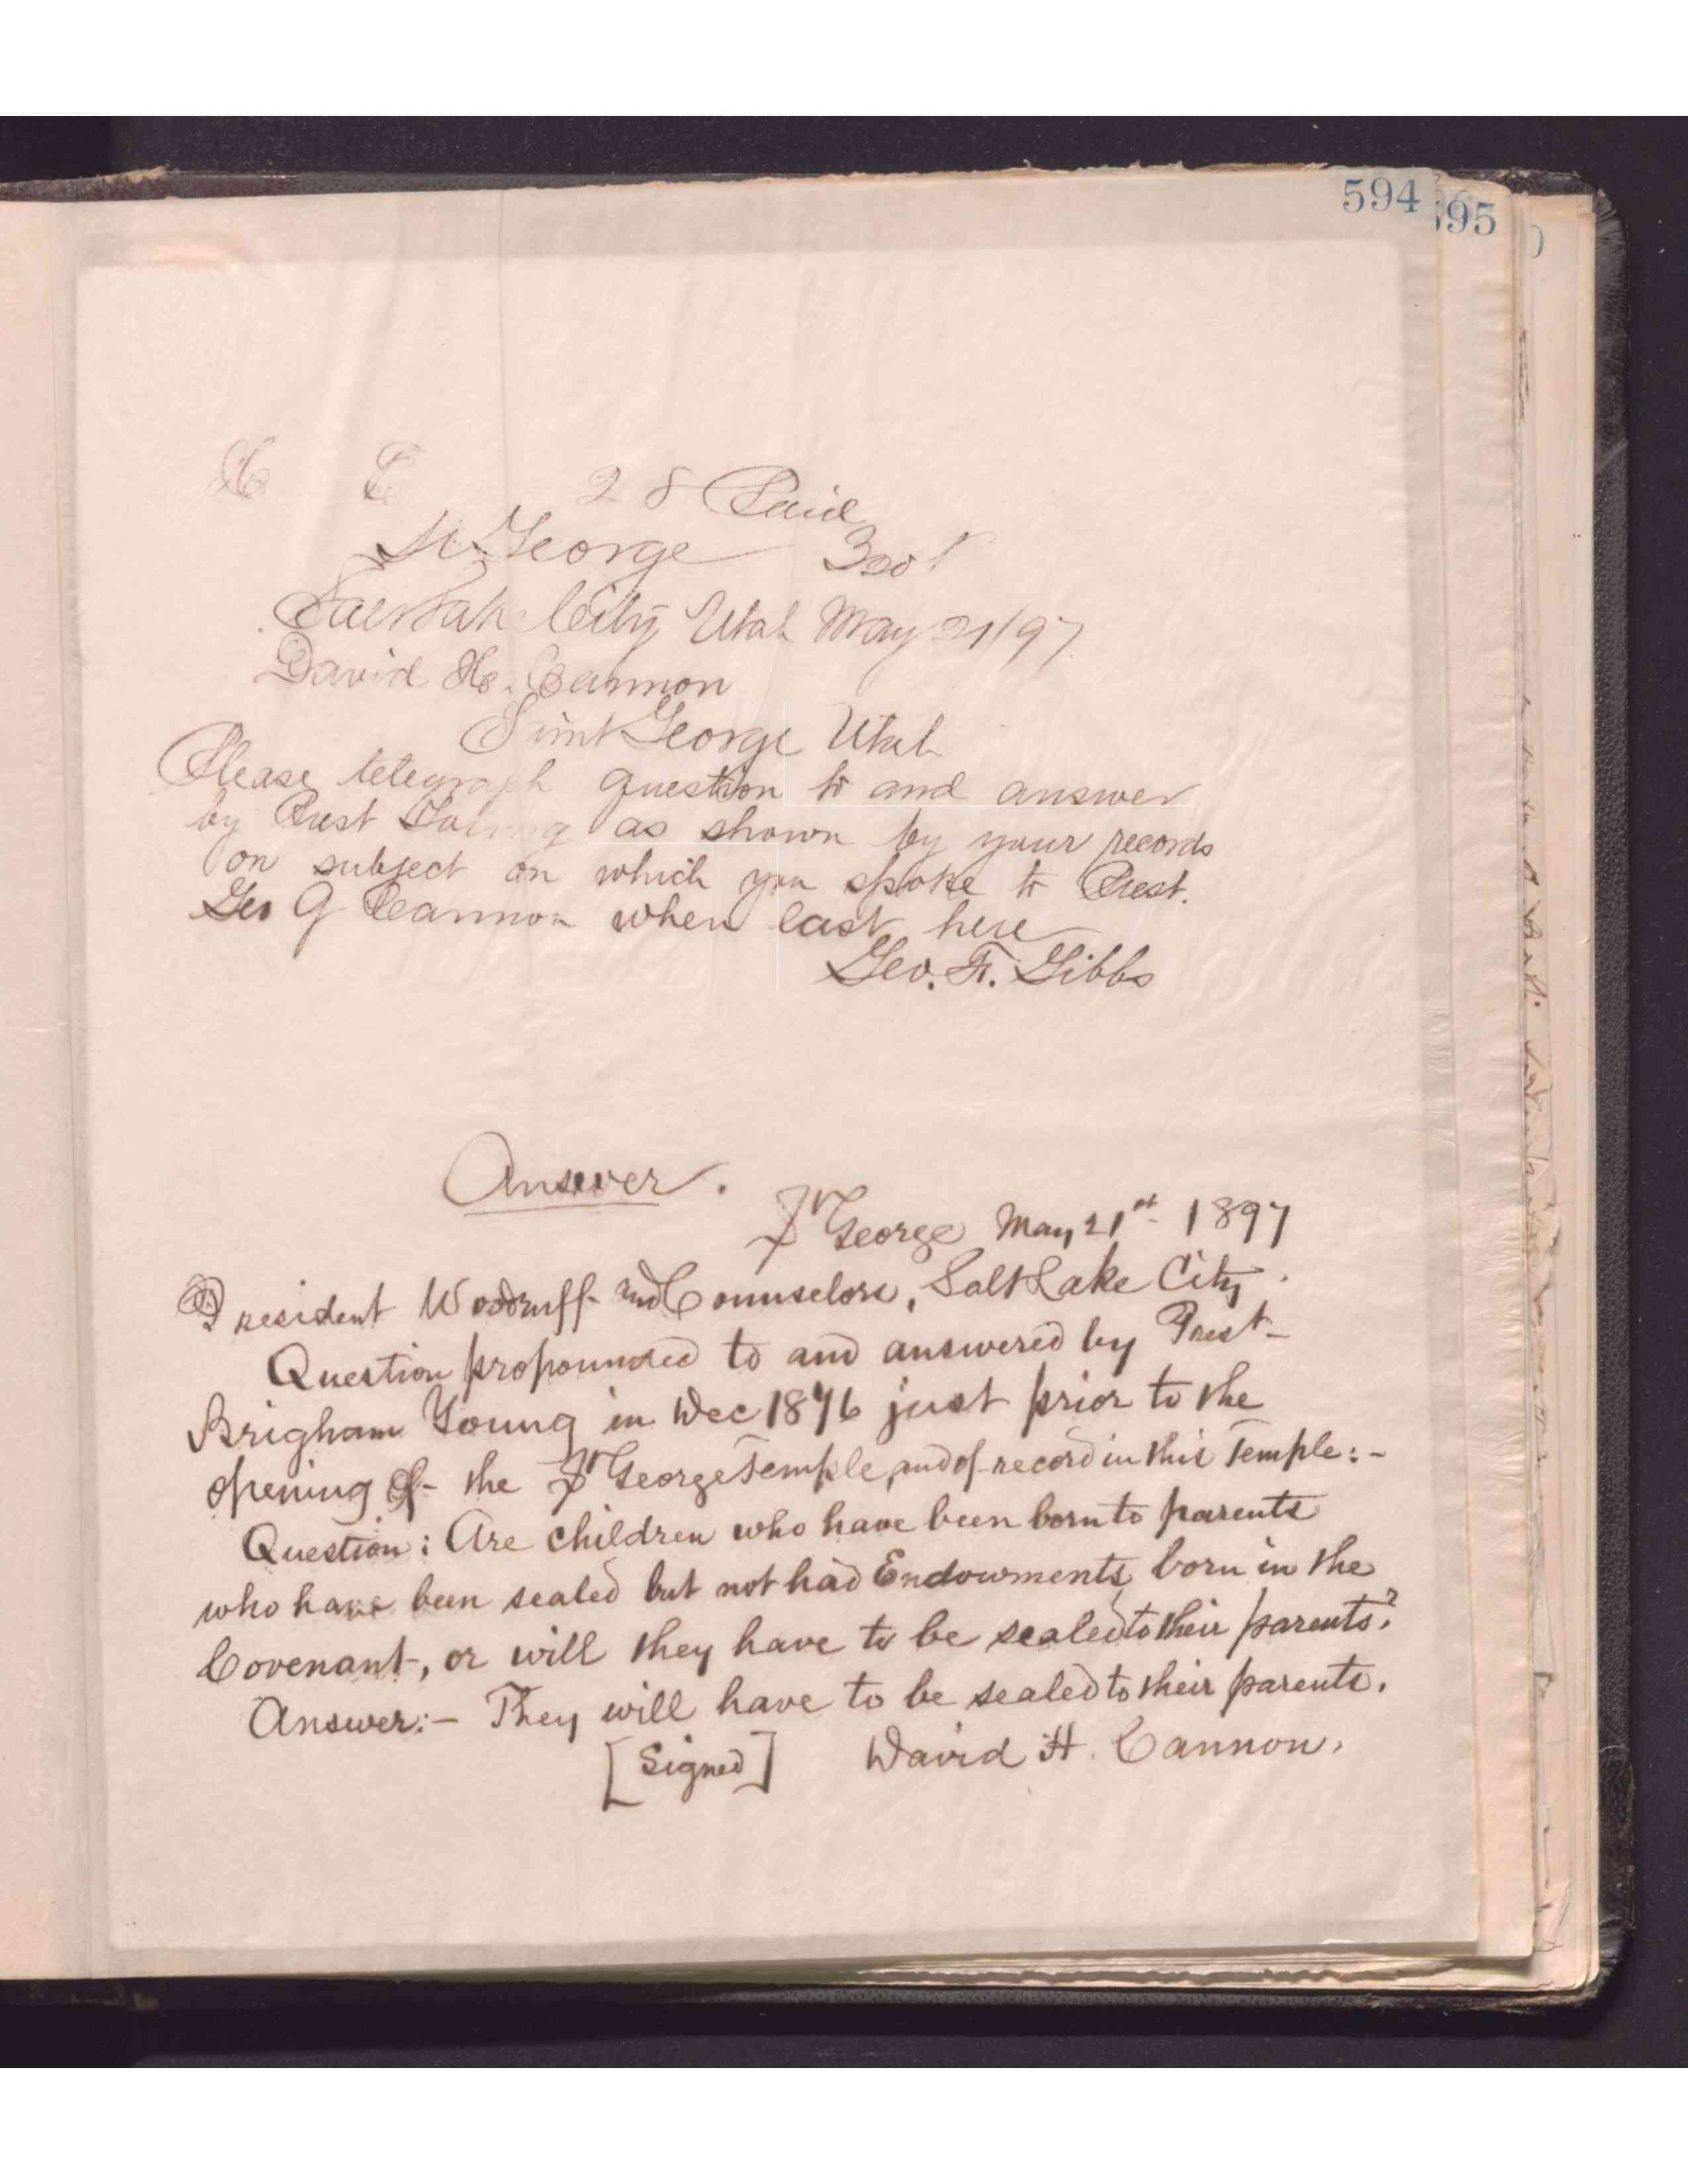 594
595
28 Paid
St George
Salt Lake City Utah May 21/97
David H. Cannon
Saint George Utah
Please telegraph question to and answer
by Prest Young as shown by your records
on subject on which you spoke to Prest.
Geo Q Cannon when last here
Geo. F. Gibbs
Answer.
St George May 21st 1897
President Woodruff and Counselors, Salt Lake City.
Question propounded to and answered by Prest
Brigham Young in Dec 1876 just prior to the
opening of the St George Temple, and of record in this Temple:-
Question: Are children who have been born to parents
who have been sealed but not had Endowments, born in the
Covenant, or will they have to be sealed to their parents?
Answer:- They will have to be sealed to their parents.
[Signed] David H. Cannon.